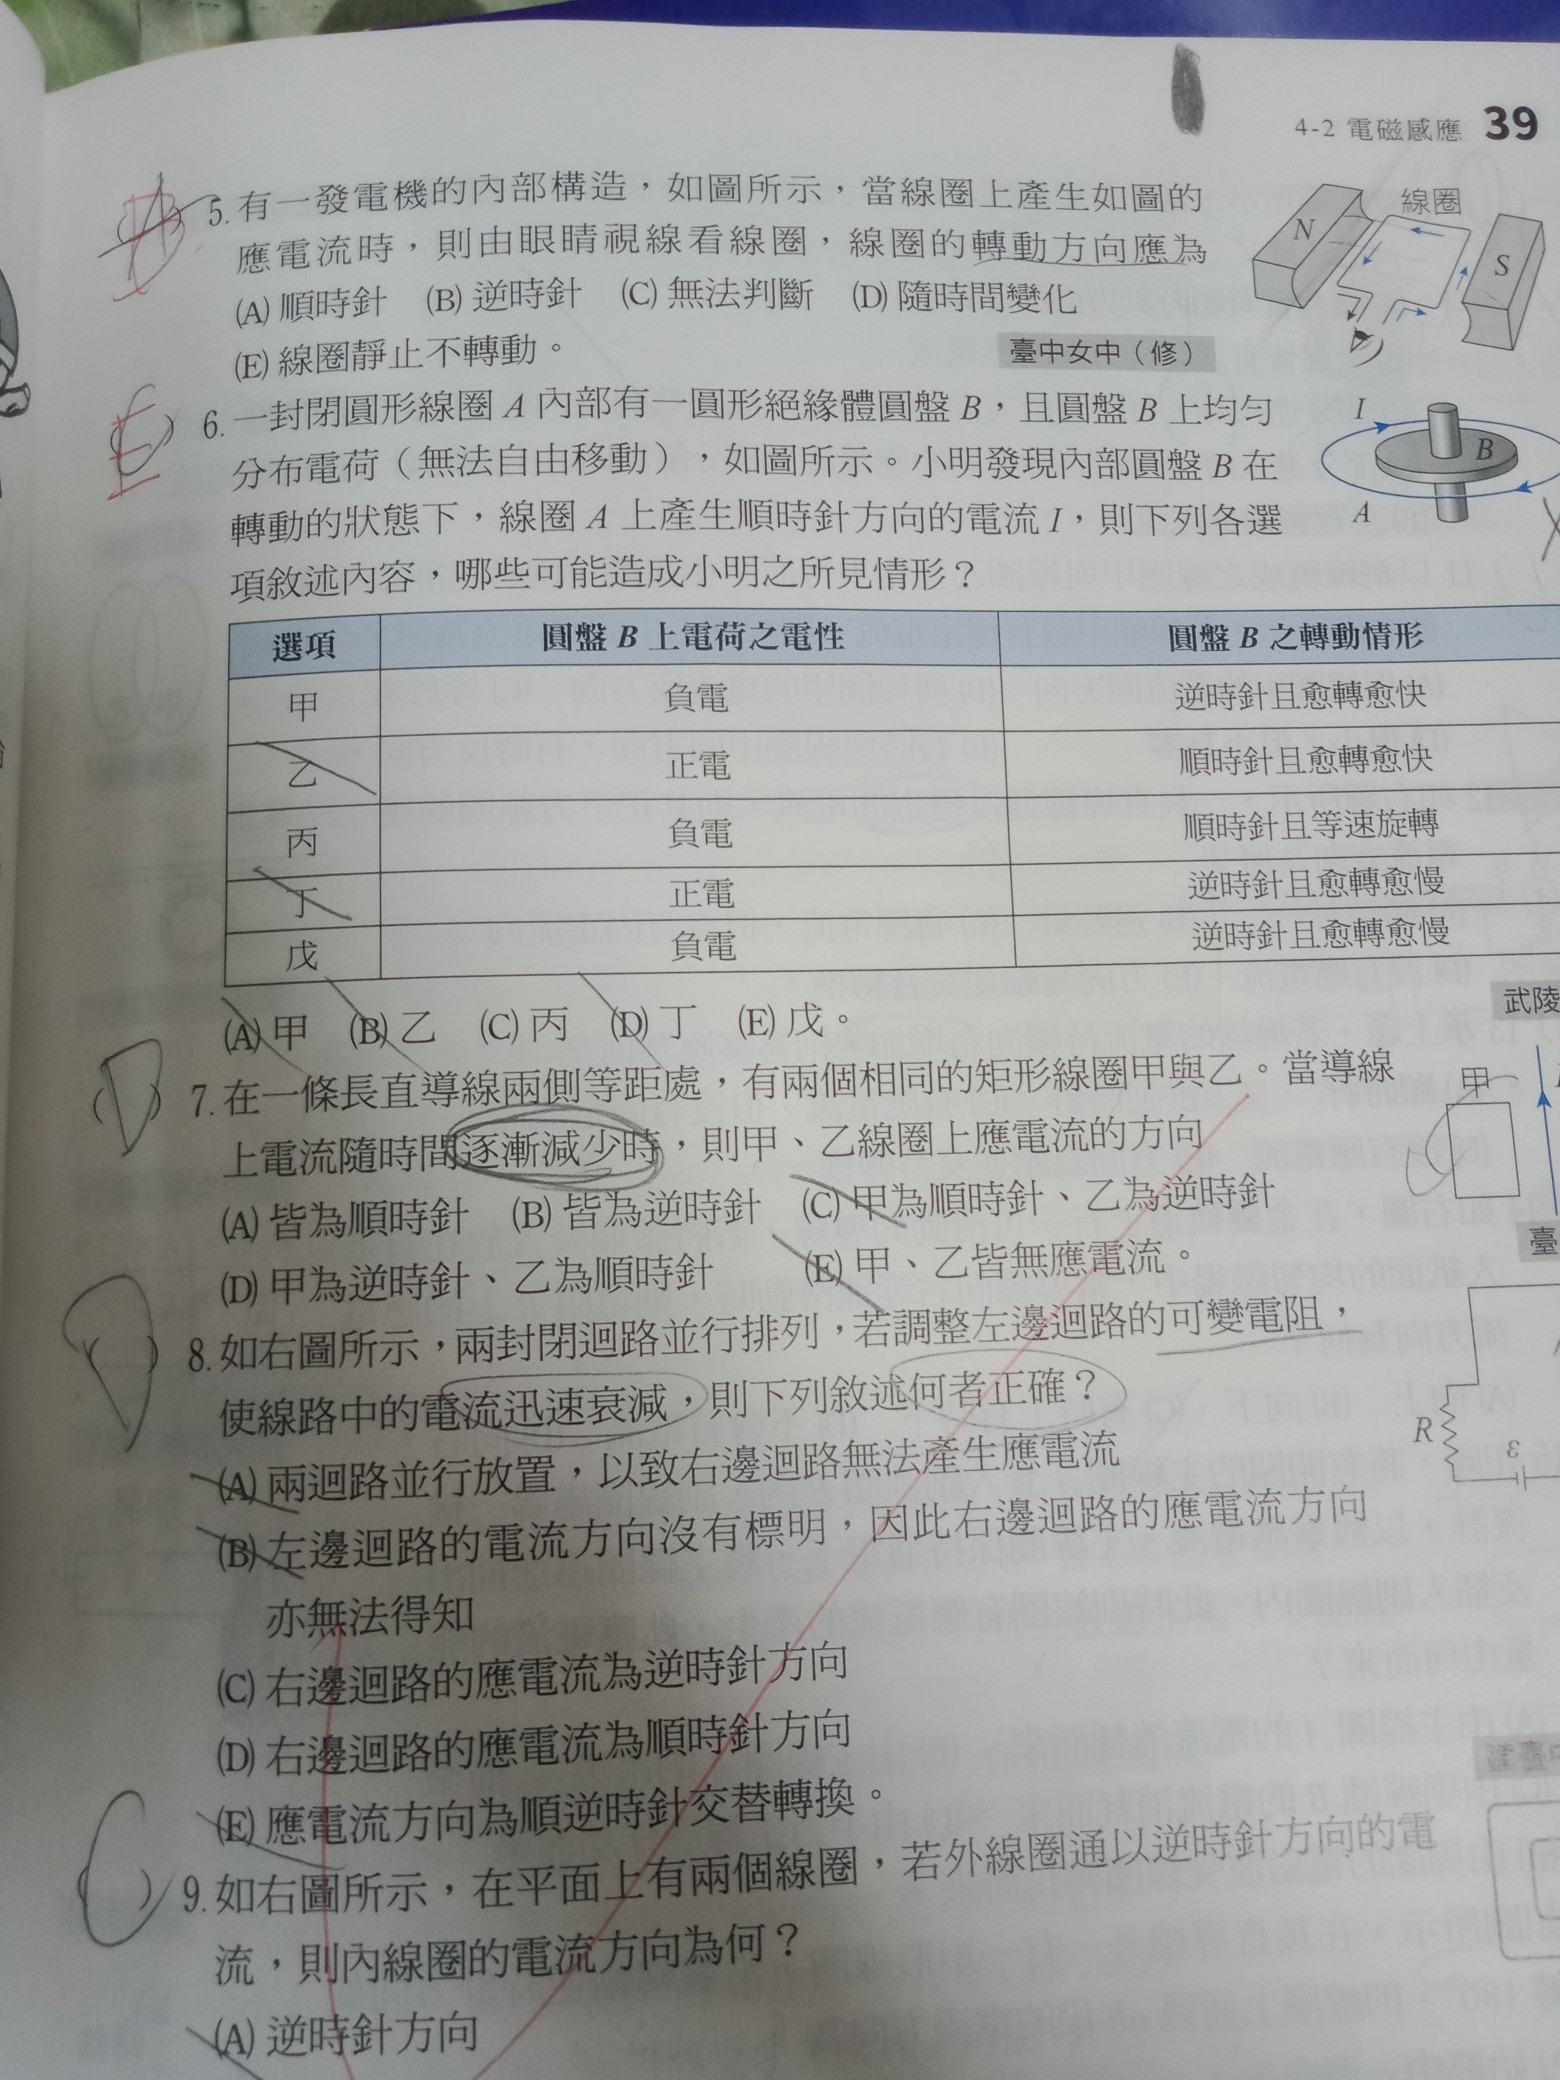 4-2 電磁感應 39
5. 有一發電機的內部構造，如圖所示，當線圈上產生如圖的
應電流時，則由眼睛視線看線圈，線圈的轉動方向應為
(A) 順時針 (B) 逆時針 (C) 無法判斷 (D) 隨時間變化
(E) 線圈靜止不轉動。
臺中女中（修）
線圈
N
S
6. 一封閉圓形線圈 A 內部有一圓形絕緣體圓盤 B，且圓盤 B 上均勻
分布電荷（無法自由移動），如圖所示。小明發現內部圓盤 B 在
轉動的狀態下，線圈 A 上產生順時針方向的電流 I，則下列各選
項敘述內容，哪些可能造成小明之所見情形？
I
B
A
E
選項 圓盤 B 上電荷之電性 圓盤 B 之轉動情形
甲 負電 逆時針且愈轉愈快
乙 正電 順時針且愈轉愈快
丙 負電 順時針且等速旋轉
丁 正電 逆時針且愈轉愈慢
戊 負電 逆時針且愈轉愈慢
(A) 甲 (B) 乙 (C) 丙 (D) 丁 (E) 戊。
武陵
D
7. 在一條長直導線兩側等距處，有兩個相同的矩形線圈甲與乙。當導線
上電流隨時間逐漸減少時，則甲、乙線圈上應電流的方向
(A) 皆為順時針 (B) 皆為逆時針 (C) 甲為順時針、乙為逆時針
(D) 甲為逆時針、乙為順時針 (E) 甲、乙皆無應電流。
甲
臺
8. 如右圖所示，兩封閉迴路並行排列，若調整左邊迴路的可變電阻，
使線路中的電流迅速衰減，則下列敘述何者正確？
(A) 兩迴路並行放置，以致右邊迴路無法產生應電流
(B) 左邊迴路的電流方向沒有標明，因此右邊迴路的應電流方向
亦無法得知
(C) 右邊迴路的應電流為逆時針方向
(D) 右邊迴路的應電流為順時針方向
(E) 應電流方向為順逆時針交替轉換。
R
ε
9. 如右圖所示，在平面上有兩個線圈，若外線圈通以逆時針方向的電
流，則內線圈的電流方向為何？
(A) 逆時針方向